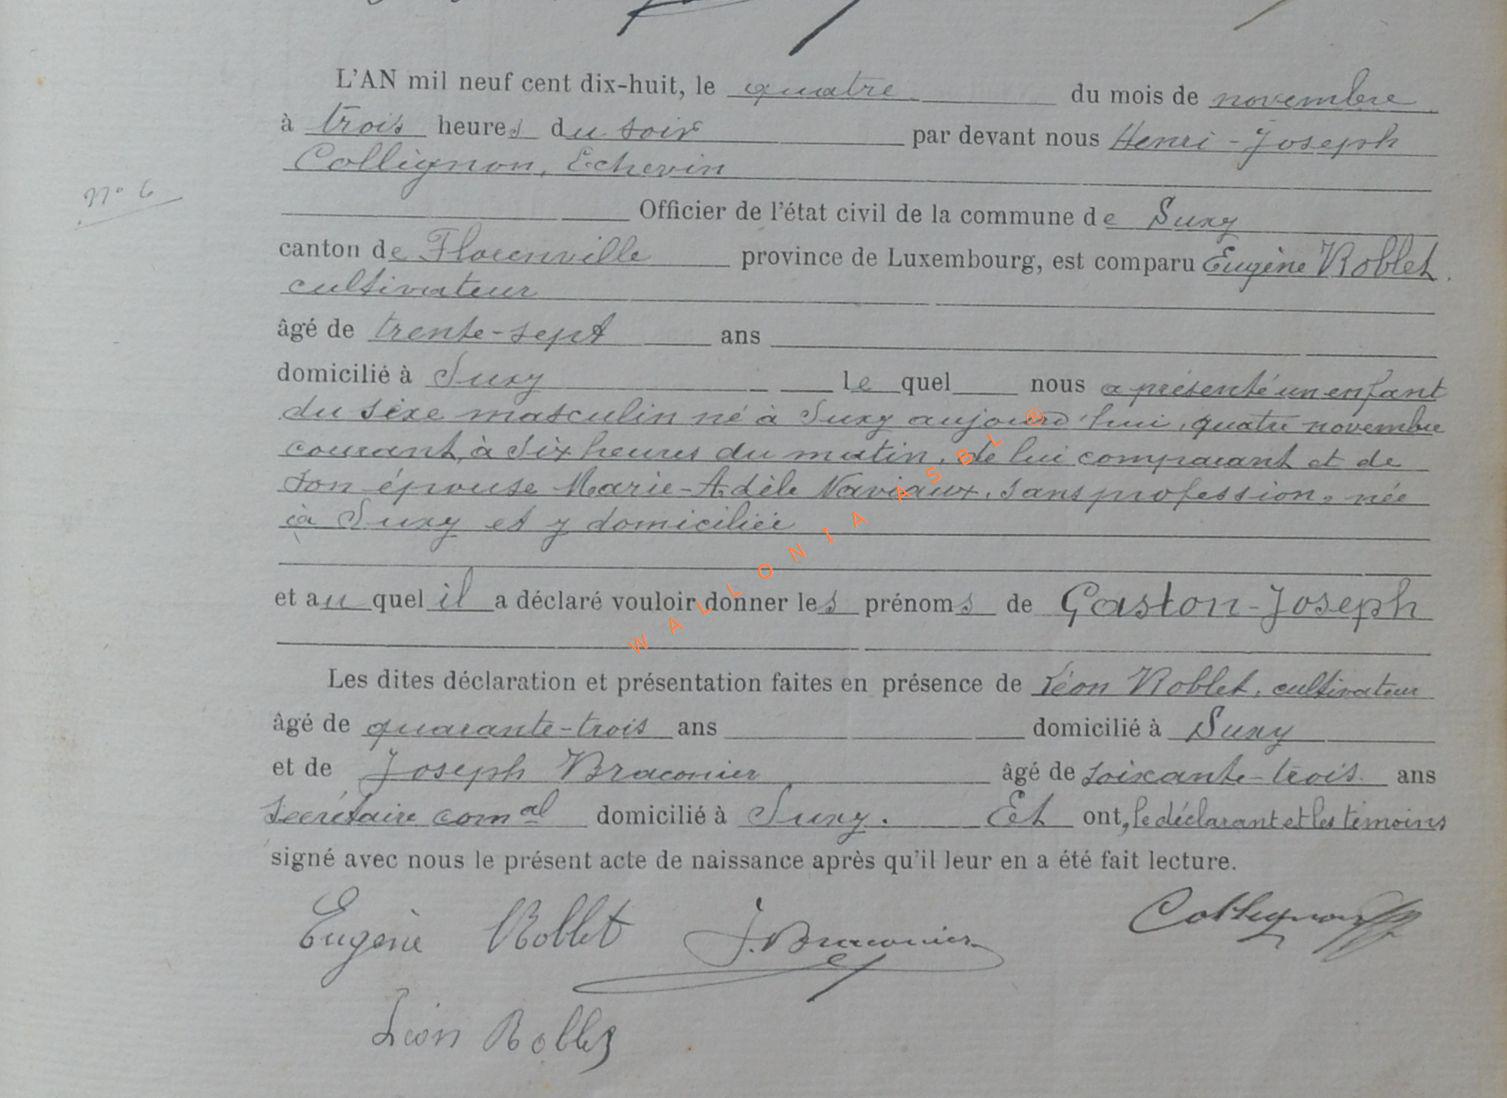 L'AN mil neuf cent dix-huit, le quatre du mois de novembre
à trois heures du soir par devant nous Henri-Joseph
Collignon, Echevin
N° 6
Officier de l'état civil de la commune de Suxy
canton de Florenville province de Luxembourg, est comparu Eugène Roblet.
cultivateur
âgé de trente-sept ans
domicilié à Suxy le quel nous a présenté un enfant
du sèxe masculin né à Suxy aujourd'hui, quatre novembre
courant, à six heures du matin, de lui comparant et de
son épouse Marie-Adèle Naviaux, sans profession, née
à Suxy et y domiciliée
et au quel il a déclaré vouloir donner les prénoms de Gaston-Joseph
Les dites déclaration et présentation faites en présence de Léon Roblet, cultivateur
âgé de quarante-trois ans domicilié à Suxy
et de Joseph Braconier âgé de soixante-trois ans
secrétaire com^al domicilié à Suxy. Et ont, le déclarant et les témoins
signé avec nous le présent acte de naissance après qu'il leur en a été fait lecture.
Eugène Roblet J. Braconier Collignon
Léon Roblet
WALLONIA ASBL ©